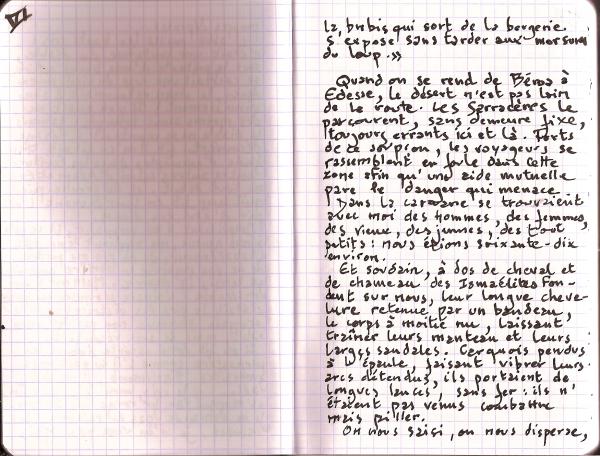 VI
la brebis qui sort de la bergerie
s'expose sans tarder aux morsures
du loup.»
Quand on se rend de Béroa à
Edesse, le désert n'est pas loin
de la route. Les Sarracènes le
parcourent, sans demeure fixe,
toujours errants ici et là. Forts
de ce soupçon, les voyageurs se
rassemblent en foule dans cette
zone afin qu'une aide mutuelle
pare le danger qui menace
Dans la caravane se trouvaient
avec moi des hommes, des femmes,
des vieux, des jeunes, des tout
petits : nous étions soixante-dix
environ.
Et soudain, à dos de cheval et
de chameau des Ismaélites fon-
dent sur nous, leur longue cheve-
lure retenue par un bandeau,
le corps à moitié nu, laissant
traîner leurs manteau et leurs
larges sandales. Carquois pendus
à l'épaule, faisant vibrer leurs
arcs détendus, ils portaient de
longues lances, sans fer : ils n'
étaient pas venus combattre
mais piller.
On nous saisi, on nous disperse,